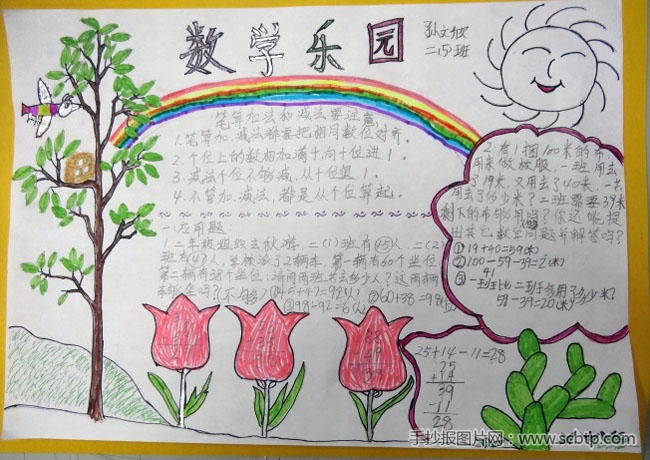 数学乐园
二(5)班
笔算加法和减法要注意
1.笔算加、减法都要把相同数位对齐。
2.个位上的数相加满十,向十位进1。
3.减法个位不够减,从十位退1。
4.不管加、减法,都是从个位算起。
一.应用题
1.二年级组织去秋游,二(1)班有45人,二(2)
班有47人,学校派了2辆车,第一辆有60个座位,
第二辆有38个座位,请问两班共去多少人?这两辆
车够坐吗?(不够) ①45+47=92(人) ②60+38=98
③98-92=6
2.有1捆100米的布,
用来做校服,一班用去
了19米,又用去了40米,一共
用去了多少米?二班需要39米
剩下的布够用吗?你还能提
出其它数学问题并解答吗?
①19+40=59(米)
②100-59-39=2(米)
41
③一班比二班多用了多少米?
59-39=20(米)
25+14-11=28
25
+14
39
-11
28
手抄报图片网:www.scbtp.com